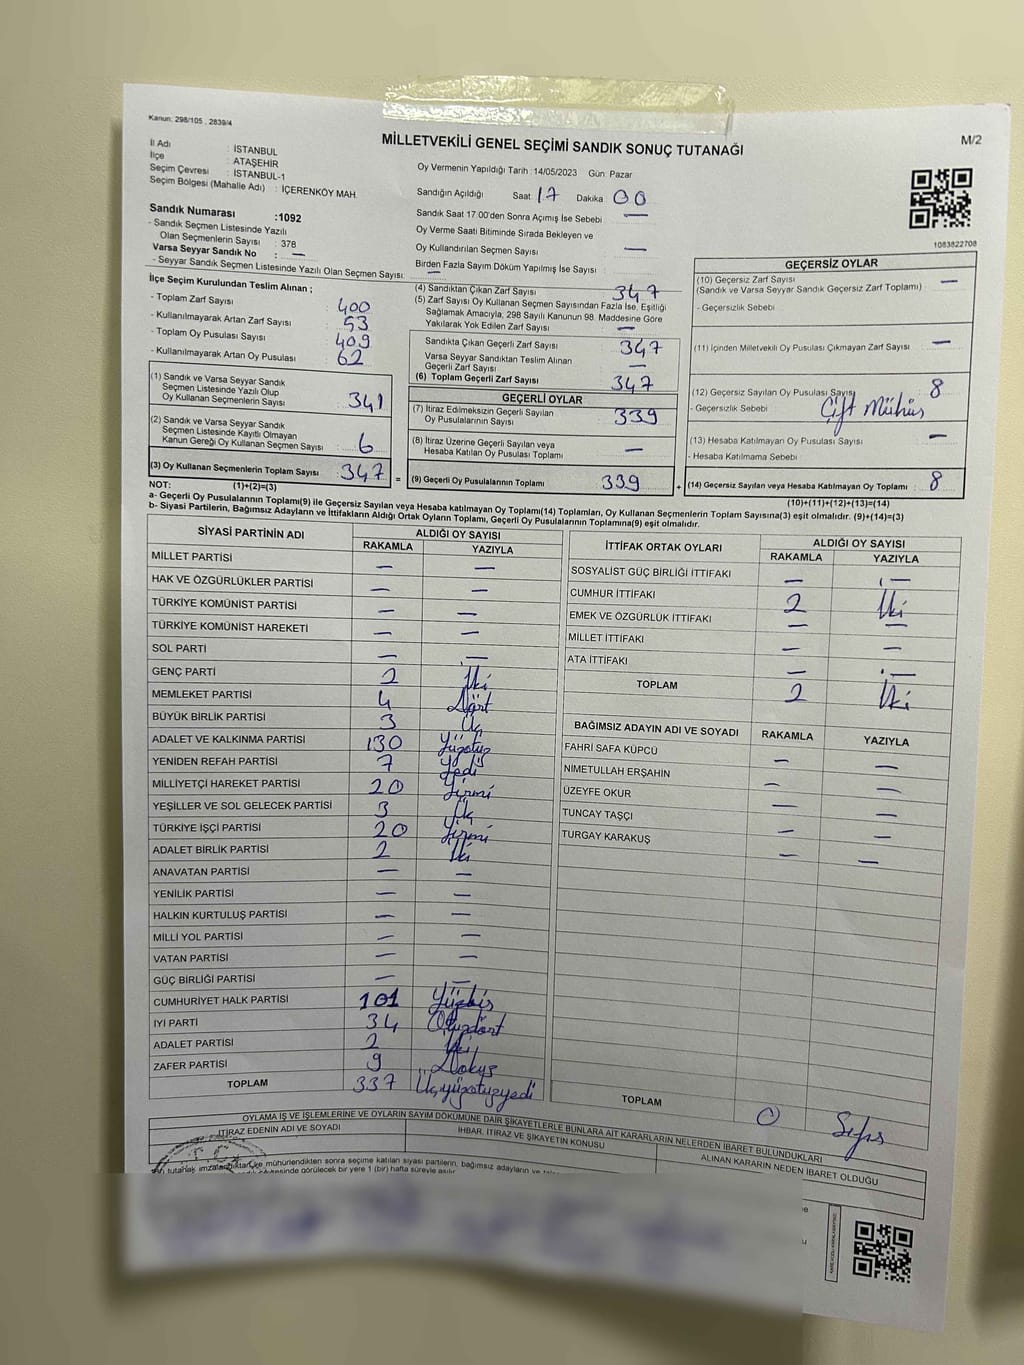 Kanun: 298/105 , 2839/4
M/2
MİLLETVEKİLİ GENEL SEÇİMİ SANDIK SONUÇ TUTANAĞI
İl Adı : İSTANBUL
İlçe : ATAŞEHİR
Seçim Çevresi : İSTANBUL-1
Seçim Bölgesi (Mahalle Adı) : İÇERENKÖY MAH.
Sandık Numarası :1092
- Sandık Seçmen Listesinde Yazılı
Olan Seçmenlerin Sayısı : 378
Varsa Seyyar Sandık No : —
- Seyyar Sandık Seçmen Listesinde Yazılı Olan Seçmen Sayısı: —
Oy Vermenin Yapıldığı Tarih : 14/05/2023 Gün: Pazar
Sandığın Açıldığı Saat 17 Dakika 00
Sandık Saat 17.00'den Sonra Açımış İse Sebebi —
Oy Verme Saati Bitiminde Sırada Bekleyen ve
Oy Kullandırılan Seçmen Sayısı : —
Birden Fazla Sayım Döküm Yapılmış İse Sayısı :
1083822708
İlçe Seçim Kurulundan Teslim Alınan ;
- Toplam Zarf Sayısı : 400
- Kullanılmayarak Artan Zarf Sayısı : 53
- Toplam Oy Pusulası Sayısı : 409
- Kullanılmayarak Artan Oy Pusulası : 62
(1) Sandık ve Varsa Seyyar Sandık
Seçmen Listesinde Yazılı Olup
Oy Kullanan Seçmenlerin Sayısı : 341
(2) Sandık ve Varsa Seyyar Sandık
Seçmen Listesinde Kayıtlı Olmayan
Kanun Gereği Oy Kullanan Seçmen Sayısı : 6
(3) Oy Kullanan Seçmenlerin Toplam Sayısı : 347
(4) Sandıktan Çıkan Zarf Sayısı : 347
(5) Zarf Sayısı Oy Kullanan Seçmen Sayısından Fazla İse, Eşitliği
Sağlamak Amacıyla, 298 Sayılı Kanunun 98. Maddesine Göre
Yakılarak Yok Edilen Zarf Sayısı : —
Sandıkta Çıkan Geçerli Zarf Sayısı : 347
Varsa Seyyar Sandıktan Teslim Alınan
Geçerli Zarf Sayısı : —
(6) Toplam Geçerli Zarf Sayısı : 347
GEÇERLİ OYLAR
(7) İtiraz Edilmeksizin Geçerli Sayılan
Oy Pusulalarının Sayısı : 339
(8) İtiraz Üzerine Geçerli Sayılan veya
Hesaba Katılan Oy Pusulası Toplamı : —
= (9) Geçerli Oy Pusulalarının Toplamı : 339 +
GEÇERSİZ OYLAR
(10) Geçersiz Zarf Sayısı : —
(Sandık ve Varsa Seyyar Sandık Geçersiz Zarf Toplamı)
- Geçersizlik Sebebi :
(11) İçinden Milletvekili Oy Pusulası Çıkmayan Zarf Sayısı : —
(12) Geçersiz Sayılan Oy Pusulası Sayısı : 8
- Geçersizlik Sebebi : Çift Mühür
(13) Hesaba Katılmayan Oy Pusulası Sayısı : —
- Hesaba Katılmama Sebebi :
(14) Geçersiz Sayılan veya Hesaba Katılmayan Oy Toplamı : 8
NOT: (1)+(2)=(3) (10)+(11)+(12)+(13)=(14)
a- Geçerli Oy Pusulalarının Toplamı(9) ile Geçersiz Sayılan veya Hesaba katılmayan Oy Toplamı(14) Toplamları, Oy Kullanan Seçmenlerin Toplam Sayısına(3) eşit olmalıdır. (9)+(14)=(3)
b- Siyasi Partilerin, Bağımsız Adayların ve İttifakların Aldığı Ortak Oyların Toplamı, Geçerli Oy Pusulalarının Toplamına(9) eşit olmalıdır.
SİYASİ PARTİNİN ADI ALDIĞI OY SAYISI
RAKAMLA YAZIYLA
MİLLET PARTİSİ — —
HAK VE ÖZGÜRLÜKLER PARTİSİ — —
TÜRKİYE KOMÜNİST PARTİSİ — —
TÜRKİYE KOMÜNİST HAREKETİ — —
SOL PARTİ — —
GENÇ PARTİ 2 İki
MEMLEKET PARTİSİ 4 Dört
BÜYÜK BİRLİK PARTİSİ 3 Üç
ADALET VE KALKINMA PARTİSİ 130 Yüzotuz
YENİDEN REFAH PARTİSİ 7 Yedi
MİLLİYETÇİ HAREKET PARTİSİ 20 Yirmi
YEŞİLLER VE SOL GELECEK PARTİSİ 3 Üç
TÜRKİYE İŞÇİ PARTİSİ 20 Yirmi
ADALET BİRLİK PARTİSİ 2 İki
ANAVATAN PARTİSİ — —
YENİLİK PARTİSİ — —
HALKIN KURTULUŞ PARTİSİ — —
MİLLİ YOL PARTİSİ — —
VATAN PARTİSİ — —
GÜÇ BİRLİĞİ PARTİSİ — —
CUMHURİYET HALK PARTİSİ 101 Yüzbir
İYİ PARTİ 34 Otuzdört
ADALET PARTİSİ 2 İki
ZAFER PARTİSİ 9 Dokuz
TOPLAM 337 Üçyüzotuzyedi
İTTİFAK ORTAK OYLARI ALDIĞI OY SAYISI
RAKAMLA YAZIYLA
SOSYALİST GÜÇ BİRLİĞİ İTTİFAKI — —
CUMHUR İTTİFAKI 2 İki
EMEK VE ÖZGÜRLÜK İTTİFAKI — —
MİLLET İTTİFAKI — —
ATA İTTİFAKI — —
TOPLAM 2 İki
BAĞIMSIZ ADAYIN ADI VE SOYADI RAKAMLA YAZIYLA
FAHRİ SAFA KÜPCÜ — —
NİMETULLAH ERŞAHİN — —
ÜZEYFE OKUR — —
TUNCAY TAŞÇI — —
TURGAY KARAKUŞ — —
TOPLAM 0 Sıfır
OYLAMA İŞ VE İŞLEMLERİNE VE OYLARIN SAYIM DÖKÜMÜNE DAİR ŞİKAYETLERLE BUNLARA AİT KARARLARIN NELERDEN İBARET BULUNDUKLARI
İTİRAZ EDENİN ADI VE SOYADI
İHBAR, İTİRAZ VE ŞİKAYETİN KONUSU
ALINAN KARARIN NEDEN İBARET OLDUĞU
T.C.
mühürlendikten sonra seçime katılan siyasi partilerin, bağımsız adayların ve
görülecek bir yere 1 (bir) hafta süreyle asılır.